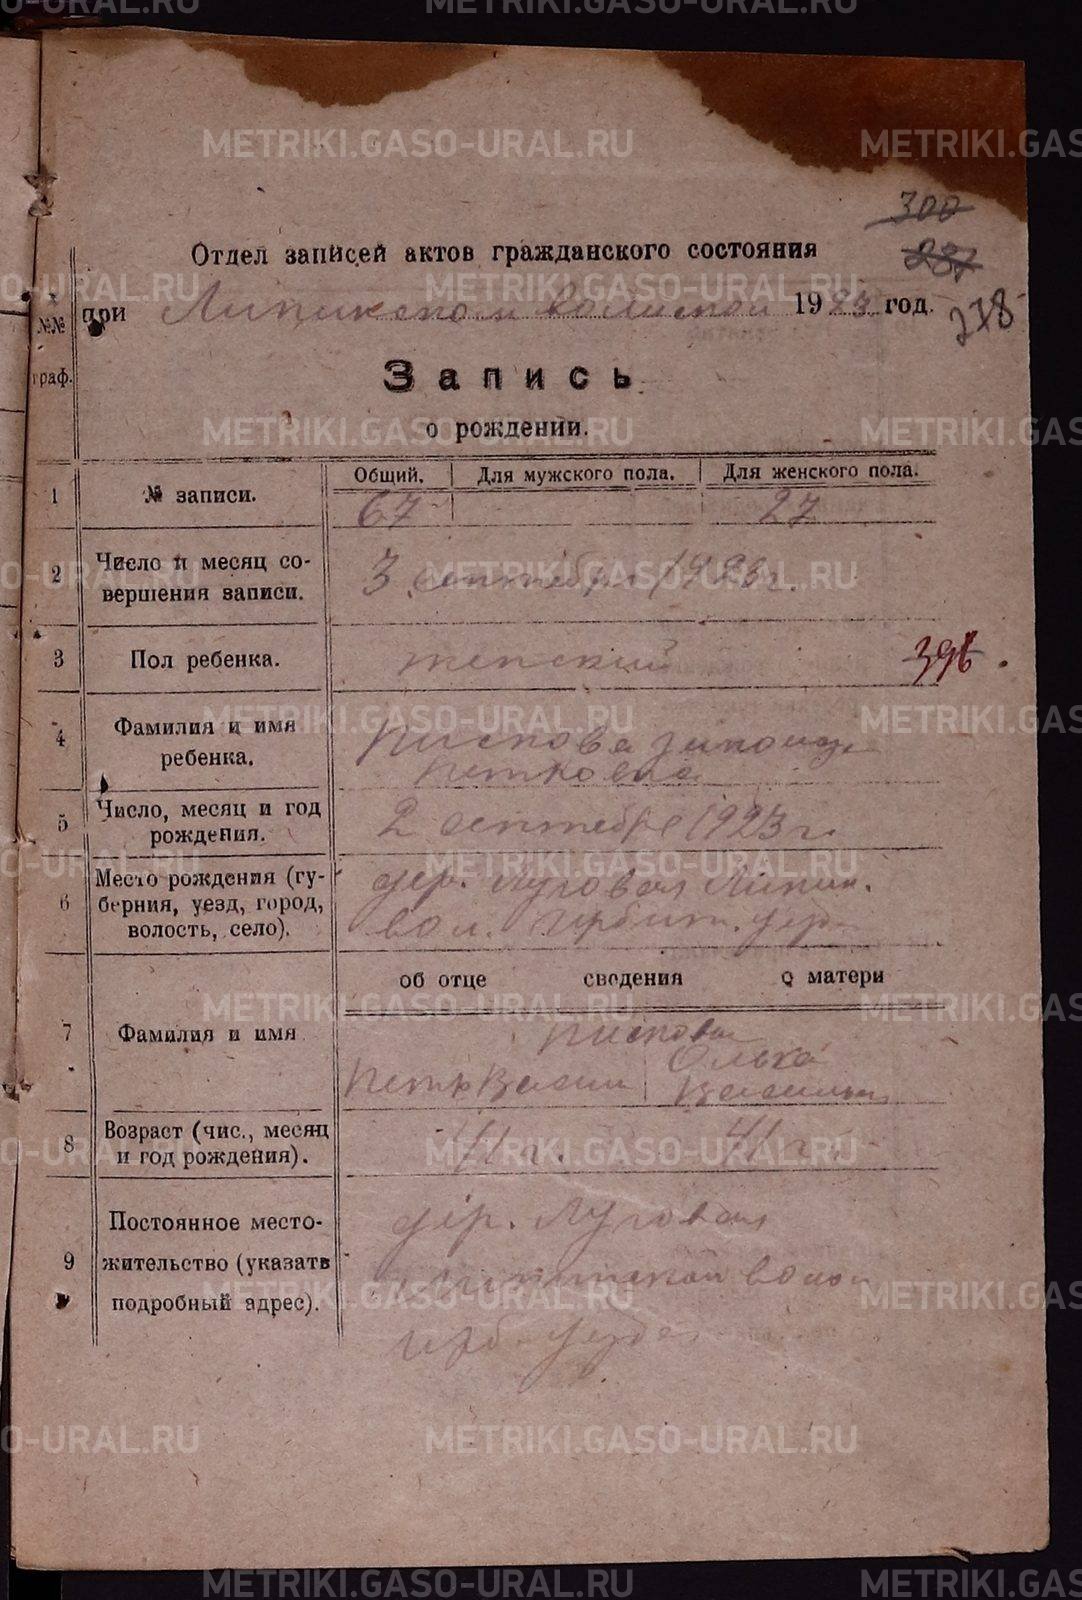 300
287
278
Отдел записей актов гражданского состояния
при Липинском волисполкоме 1923 год.
№№ граф.
Запись
о рождении.
1 № записи. Общий. Для мужского пола. Для женского пола.
67 27
2 Число и месяц со-
вершения записи. 3 сентября 1923 г.
3 Пол ребенка. женский 396.
4 Фамилия и имя
ребенка. Пискова
5 Число, месяц и год
рождения. 2 сентября 1923 г.
6 Место рождения (гу-
берния, уезд, город,
волость, село). дер. Луговая Липин.
вол. Ирбит. уез.
об отце сведения о матери
7 Фамилия и имя Пискова
Петр Васил Ольга
Васильев
8 Возраст (чис., месяц
и год рождения). 41 г. 41 г.
9 Постоянное место-
жительство (указать
подробный адрес). дер. Луговая
Липинской волос
Ирб. уезда
METRIKI.GASO-URAL.RU